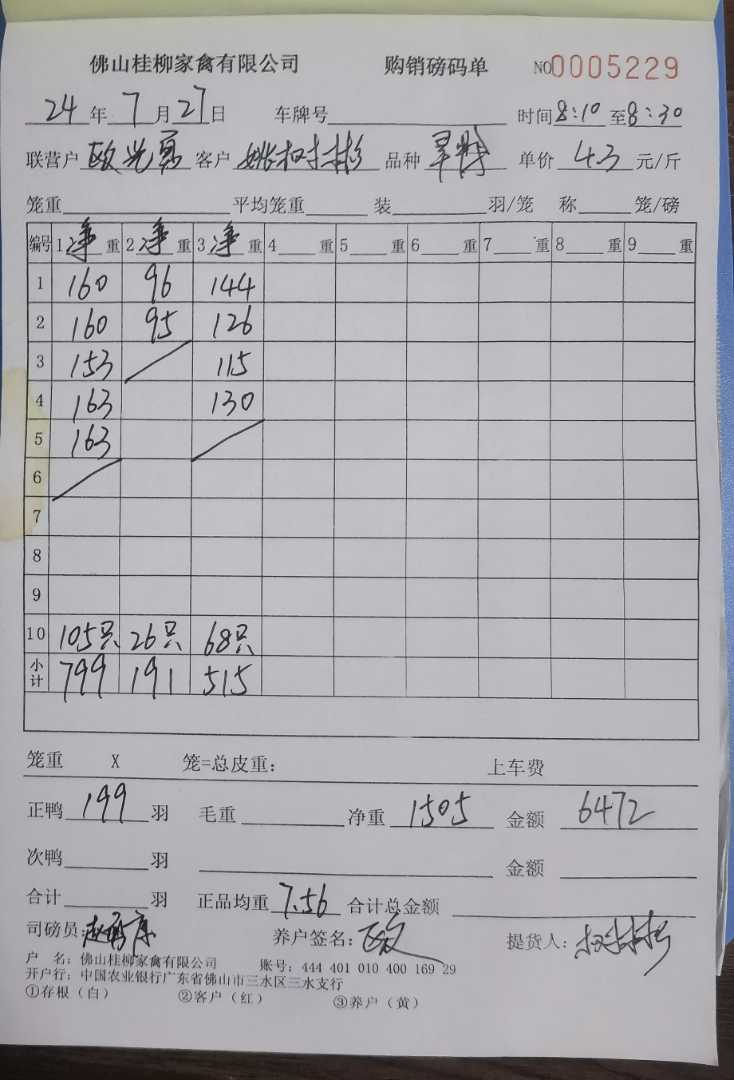 佛山桂柳家禽有限公司 购销磅码单 NO0005229
24年7月27日 车牌号 时间8:10至8:30
联营户 欧光勇 客户 姚权彬 品种 单价 4.3 元/斤
笼重 平均笼重 装 羽/笼 称 笼/磅
编号 1净重 2净重 3净重 4重 5重 6重 7重 8重 9重
1 160 96 144
2 160 95 126
3 153 115
4 163 130
5 163
6
7
8
9
10 105只 26只 68只
小计 799 191 515
笼重 X 笼=总皮重: 上车费
正鸭 199 羽 毛重 净重 1505 金额 6472
次鸭 羽 金额
合计 羽 正品均重 7.56 合计总金额
司磅员: 养户签名: 提货人:
户 名: 佛山桂柳家禽有限公司 账号: 444 401 010 400 169 29
开户行: 中国农业银行广东省佛山市三水区三水支行
①存根(白) ②客户(红) ③养户(黄)